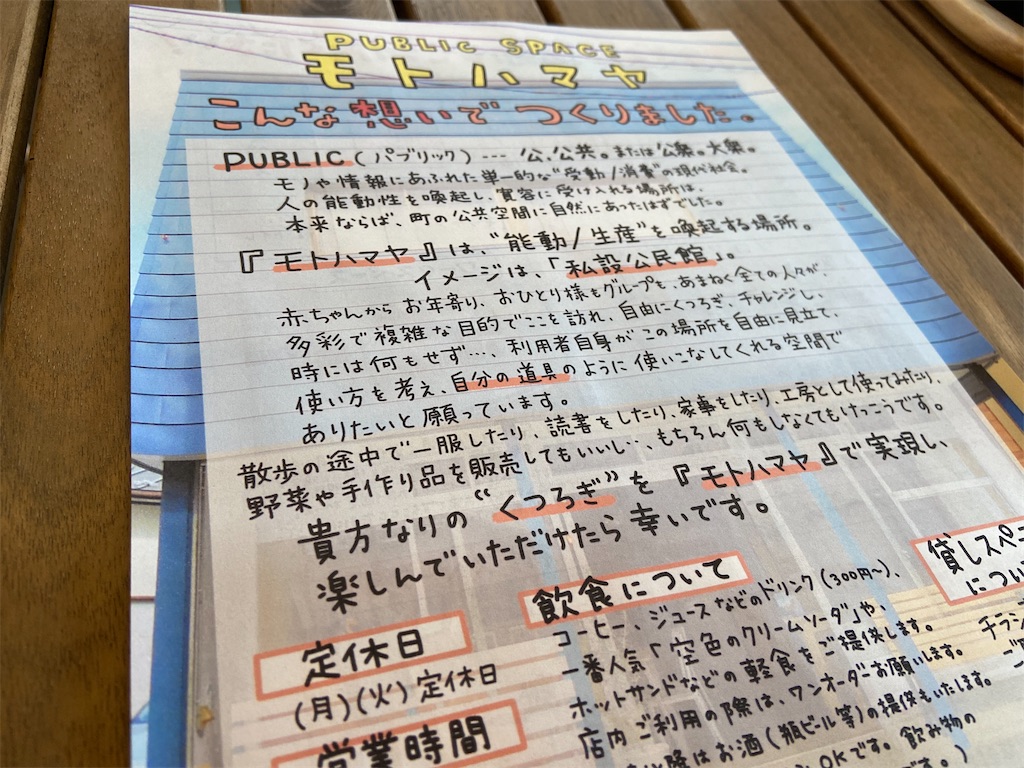 PUBLIC SPACE
モトハマヤ
こんな想いでつくりました。
PUBLIC(パブリック)--- 公、公共。または公衆。大衆。
モノや情報にあふれた単一的な“受動/消費”の現代社会。
人の能動性を喚起し、寛容に受け入れる場所は、
本来ならば、町の公共空間に自然にあったはずでした。
『モトハマヤ』は、“能動/生産”を喚起する場所。
イメージは、「私設公民館」。
赤ちゃんからお年寄り、おひとり様もグループも、あまねく全ての人々が、
多彩で複雑な目的でここを訪れ、自由にくつろぎ、チャレンジし、
時には何もせず…、利用者自身がこの場所を自由に見立て、
使い方を考え、自分の道具のように使いこなしてくれる空間で
ありたいと願っています。
散歩の途中で一服したり、読書をしたり、家事をしたり、工房として使ってみたり、
野菜や手作り品を販売してもいいし…、もちろん何もしなくてもけっこうです。
貴方なりの“くつろぎ”を『モトハマヤ』で実現し、
楽しんでいただけたら幸いです。
定休日
(月)(火)定休日
営業時間
飲食について
コーヒー、ジュースなどのドリンク(300円〜)、
一番人気「空色のクリームソーダ」や、
ホットサンドなどの軽食をご提供します。
店内ご利用の際は、ワンオーダーお願いします。
降はお酒(瓶ビール等)の提供もいたします。
OKです。飲み物の
です。)
貸しスペ
につい
チラシ